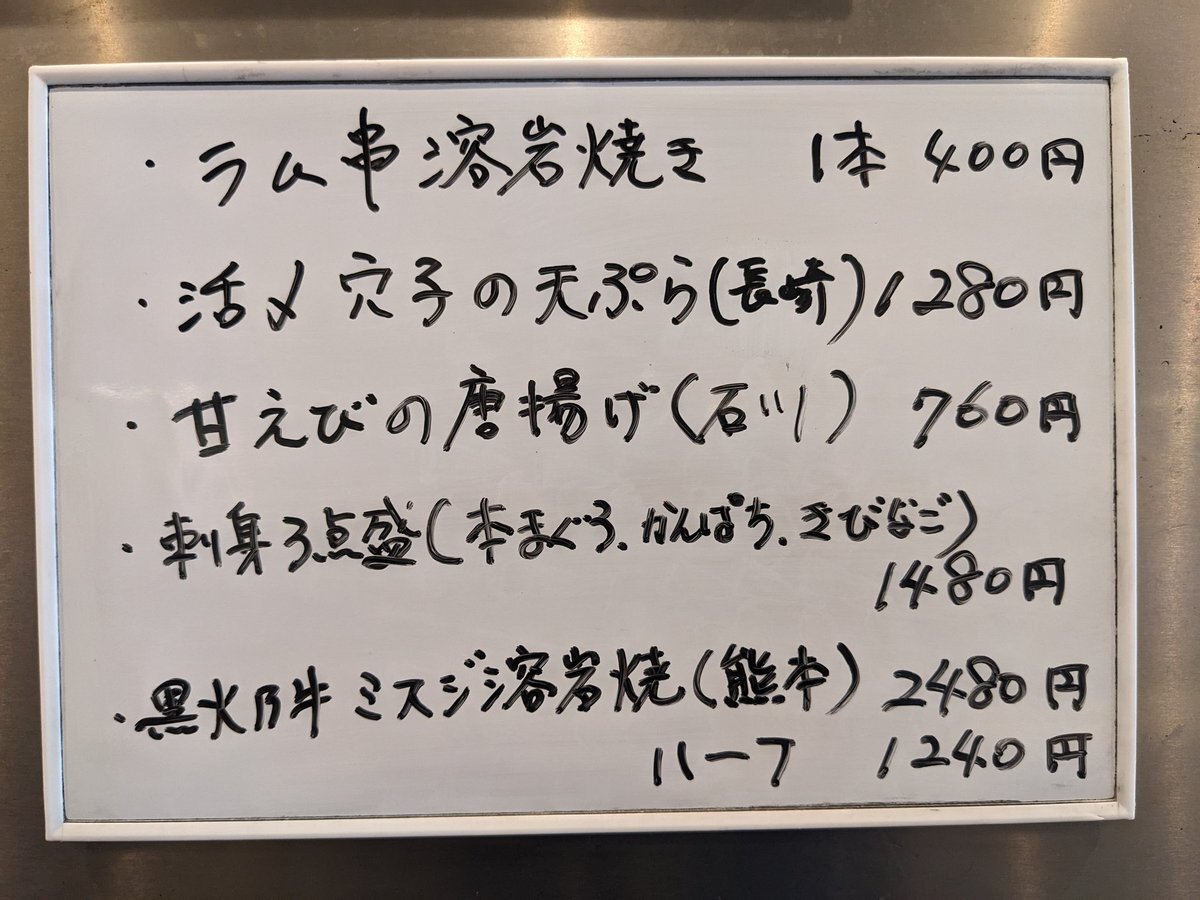 ・ラム串溶岩焼き 1本 400円
・活〆穴子の天ぷら(長崎) 1280円
・甘えびの唐揚げ(石川) 760円
・刺身3点盛(本まぐろ、かんぱち、きびなご)
1480円
・黒火乃牛ミスジ溶岩焼(熊本) 2480円
ハーフ 1240円